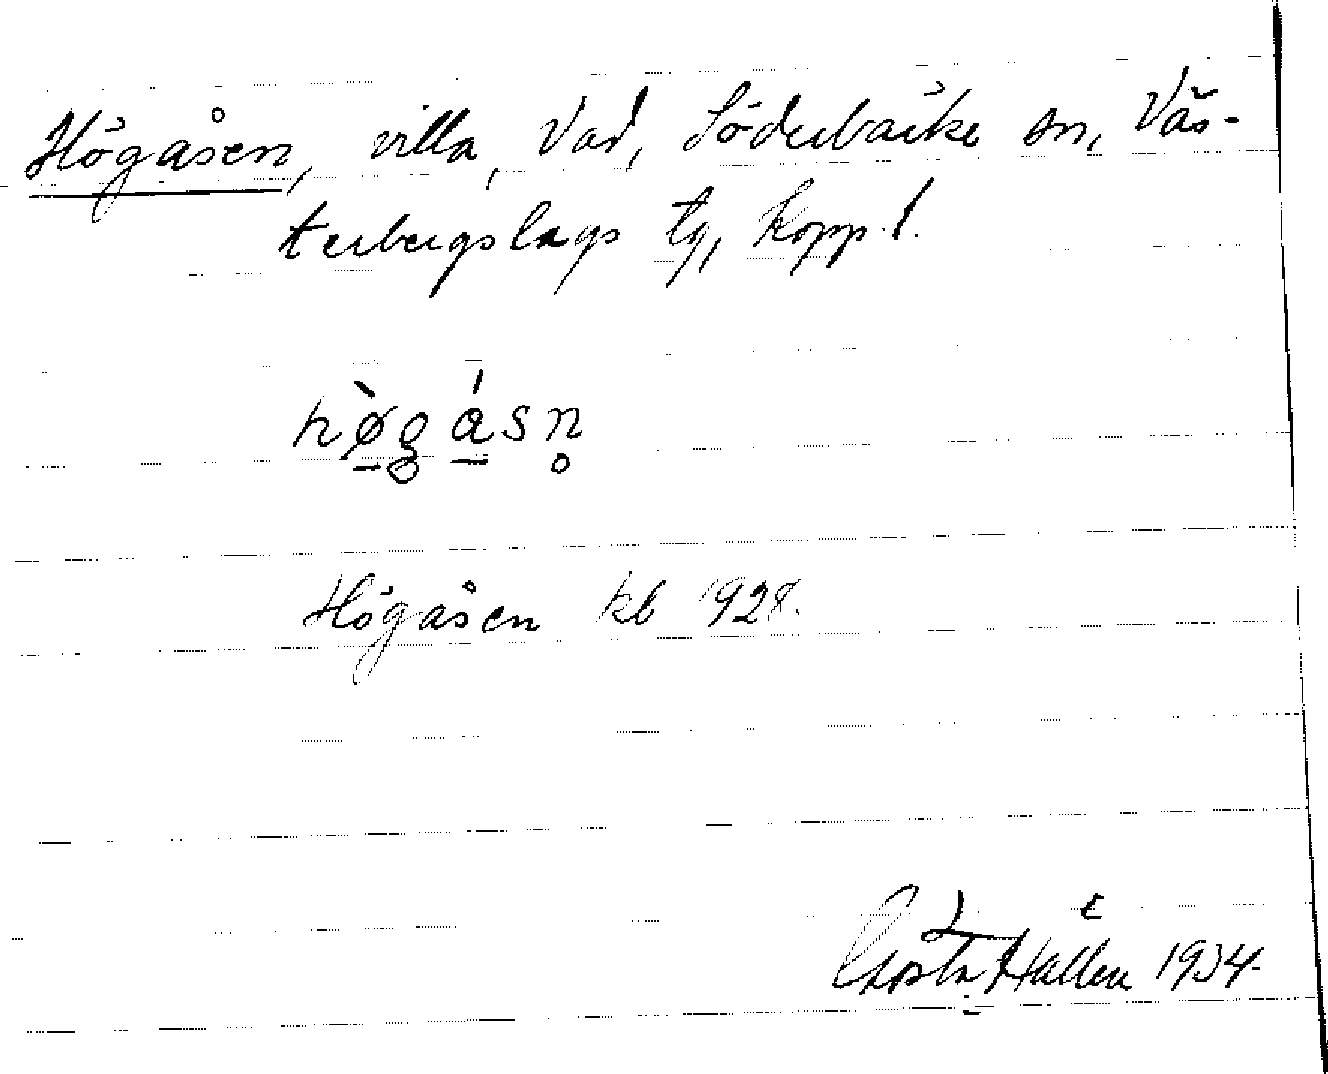 Högåsen, villa, Vad, Söderbärke sn, Väs-
terbergslags tg, Kopp. l.
hø̀gásn̥
Högåsen kb 1928.
Gösta Hallén 1934.